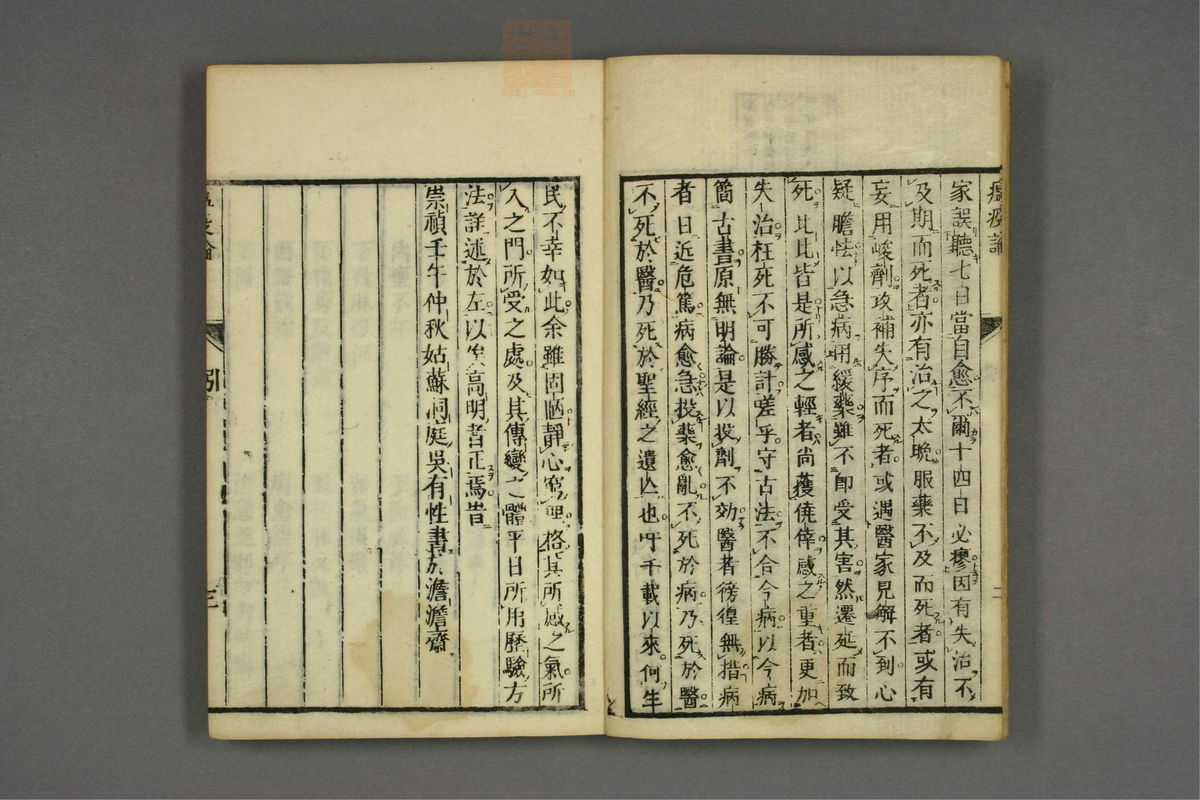 瘟疫論
二
家誤聽七日當自愈不爾十四日必瘳因有失治不
及期而死者亦有治之太晚服藥不及而死者或有
妄用峻劑攻補失序而死者或遇醫家見解不到心
疑膽怯以急病用緩藥雖不即受其害然遷延而致
死比比皆是所感之輕者尚獲僥倖感之重者更加
失治枉死不可勝計嗟乎守古法不合今病以今病
簡古書原無明論是以投劑不効醫者徬徨無措病
者日近危篤病愈急投藥愈亂不死於病乃死於醫
不死於醫乃死於聖經之遺亡也吁千載以來何生
民不幸如此余雖固陋靜心窮理格其所感之氣所
入之門所受之處及其傳變之體平日所用歷驗方
法詳述於左以俟高明者正焉旹
崇禎壬午仲秋姑蘇洞庭吳有性書於澹澹齋
引
三